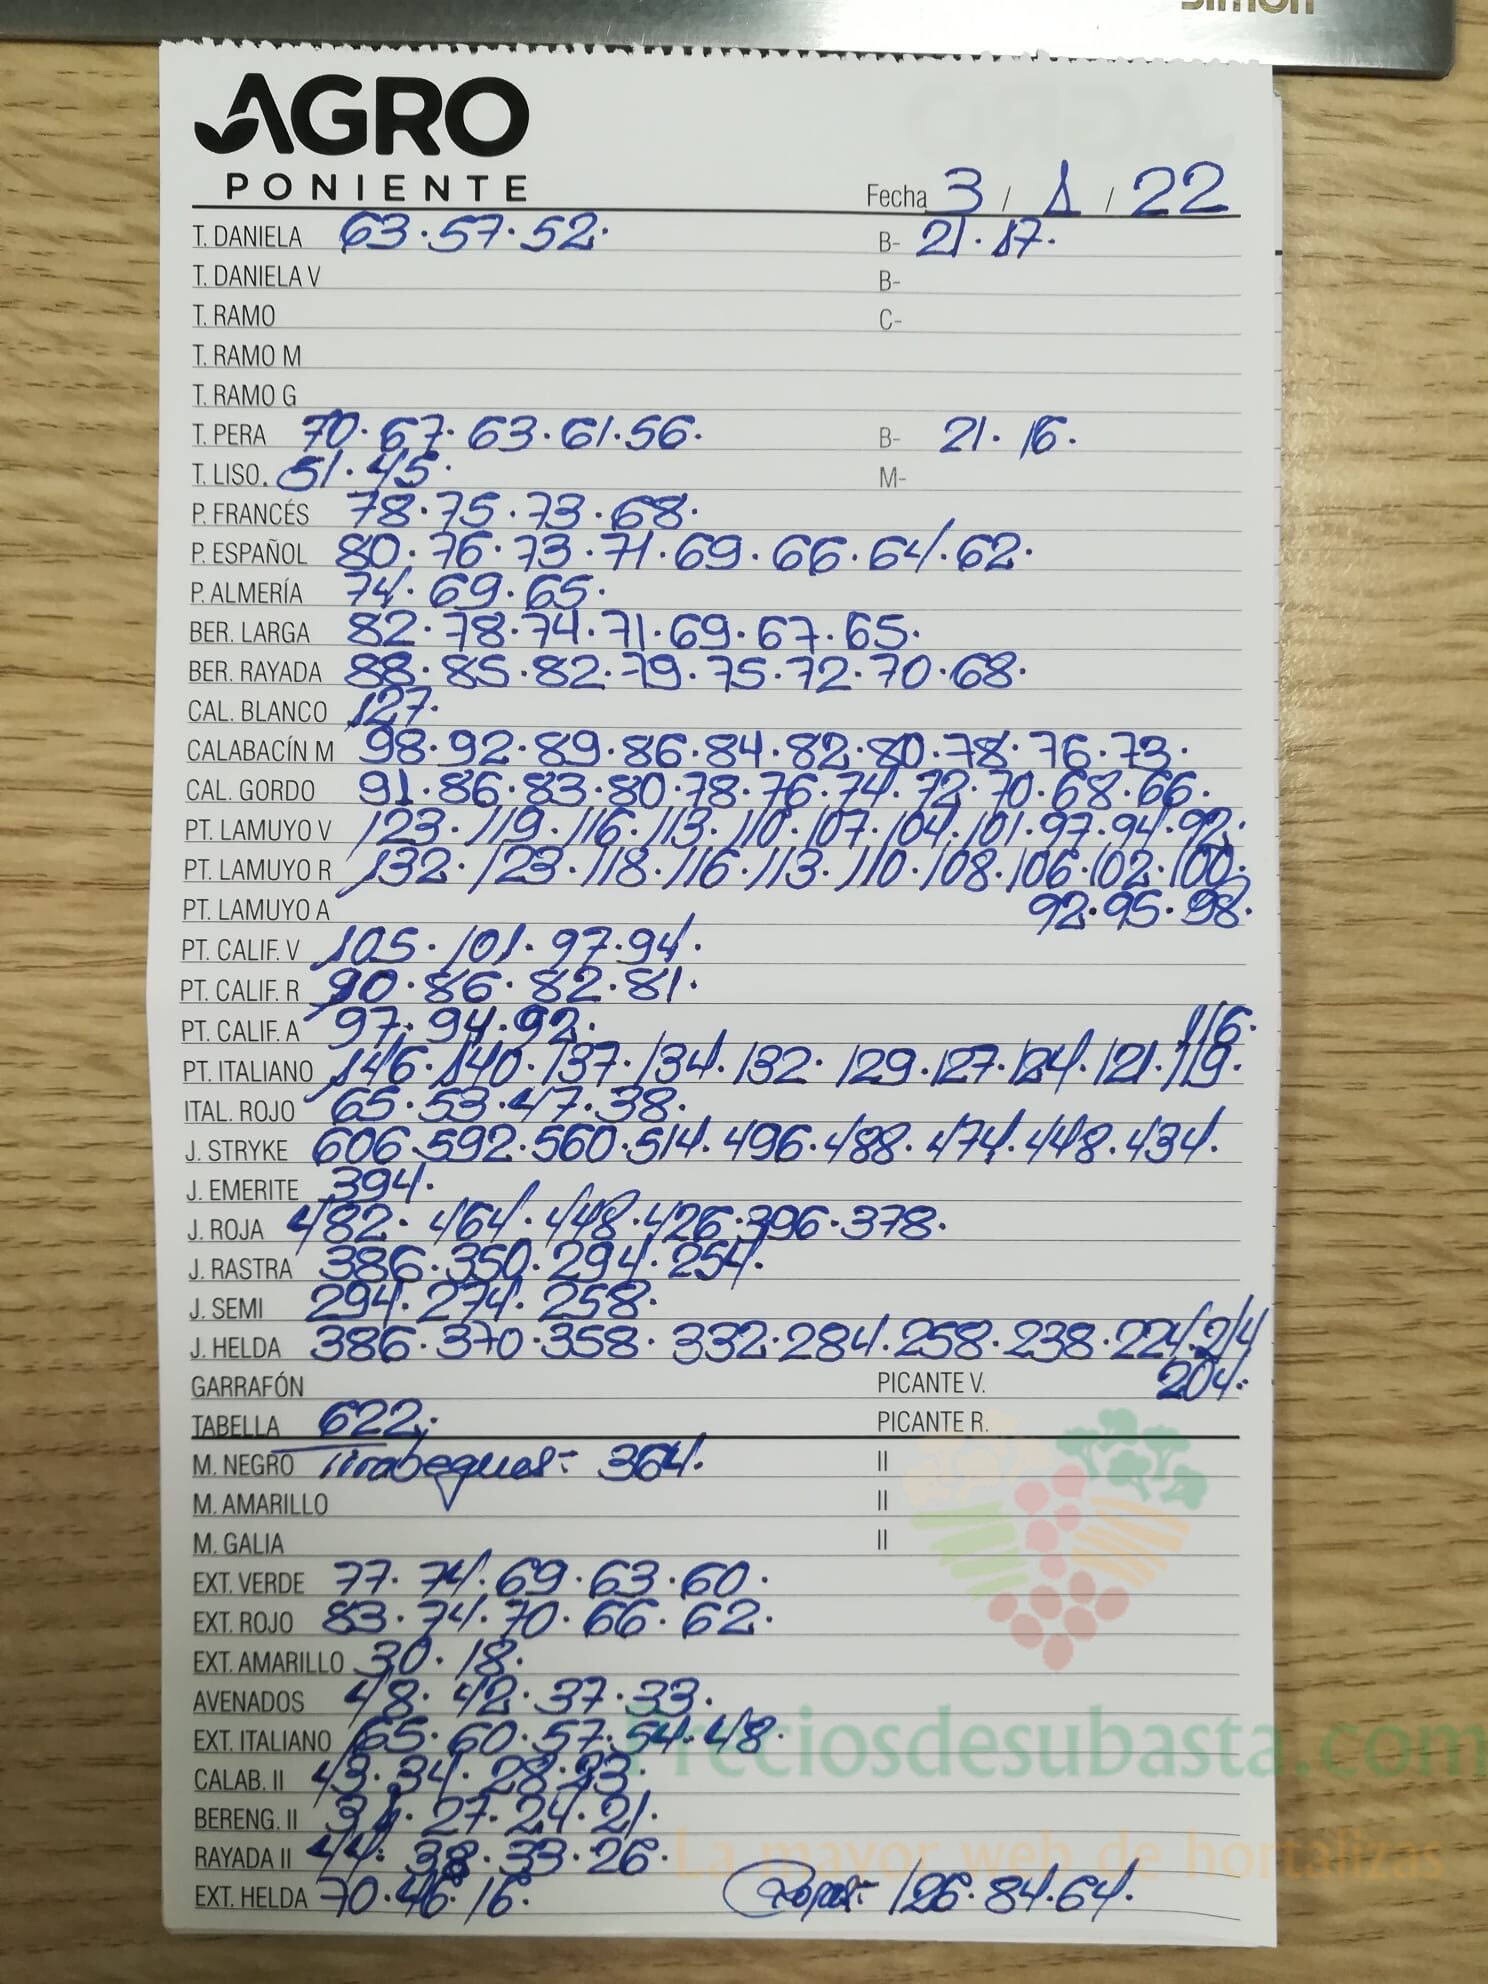 simon
AGRO
PONIENTE
Fecha 3 / 1 / 22
T. DANIELA 63.57.52. B- 21.17.
T. DANIELA V B-
T. RAMO C-
T. RAMO M
T. RAMO G
T. PERA 70.67.63.61.56. B- 21.16.
T. LISO. 51.45. M-
P. FRANCÉS 78.75.73.68.
P. ESPAÑOL 80.76.73.71.69.66.64.62.
P. ALMERÍA 74.69.65.
BER. LARGA 82.78.74.71.69.67.65.
BER. RAYADA 88.85.82.79.75.72.70.68.
CAL. BLANCO 127.
CALABACÍN M 98.92.89.86.84.82.80.78.76.73.
CAL. GORDO 91.86.83.80.78.76.74.72.70.68.66.
PT. LAMUYO V 123.119.116.113.110.107.104.101.97.94.92.
PT. LAMUYO R 132.123.118.116.113.110.108.106.102.100.
PT. LAMUYO A 92.95.98.
PT. CALIF. V 105.101.97.94.
PT. CALIF. R 90.86.82.81.
PT. CALIF. A 97.94.92. 116.
PT. ITALIANO 146.140.137.134.132.129.127.124.121.119.
ITAL. ROJO 65.53.47.38.
J. STRYKE 606.592.560.514.496.488.474.448.434.
J. EMERITE 394.
J. ROJA 482.464.448.426.396.378.
J. RASTRA 386.350.294.254.
J. SEMI 294.274.258.
J. HELDA 386.370.358.332.284.258.238.224.214
GARRAFÓN PICANTE V. 204.
TABELLA 622. PICANTE R.
M. NEGRO Tirabeques:- 364. II
M. AMARILLO II
M. GALIA II
EXT. VERDE 77.74.69.63.60.
EXT. ROJO 83.74.70.66.62.
EXT. AMARILLO 30.18.
AVENADOS 48.42.37.33.
EXT. ITALIANO 65.60.57.54.48.
Preciosdesubasta.com
CALAB. II 43.34.28.23.
BERENG. II 31.27.24.21.
RAYADA II 44.38.33.26.
La mayor web de hortalizas
EXT. HELDA 70.46.16. 126.84.64.